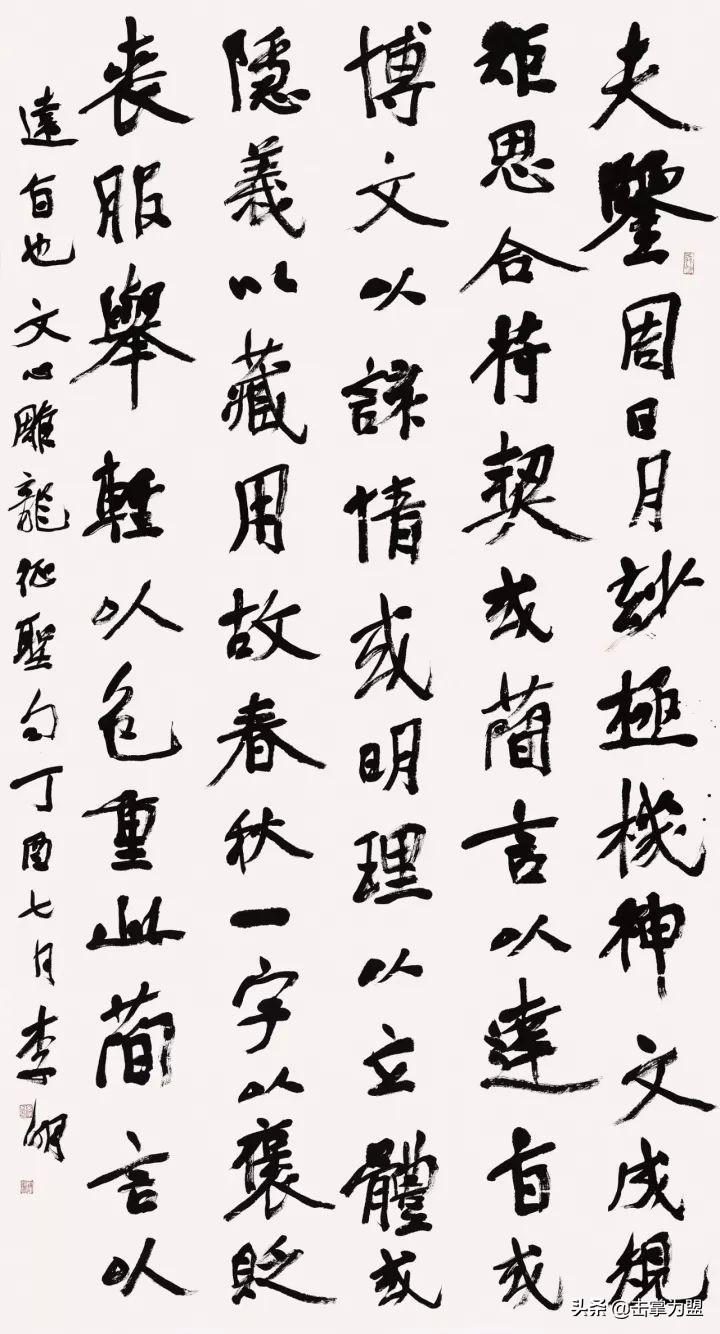 夫鑒周日月玅極機神文成規
矩思合符契或簡言以達旨或
博文以該情或明理以立體或
隱義以藏用故春秋一字以褒貶
喪服舉輕以包重此簡言以
達旨也文心雕龍征聖句丁酉七月李
头条 @击掌为盟